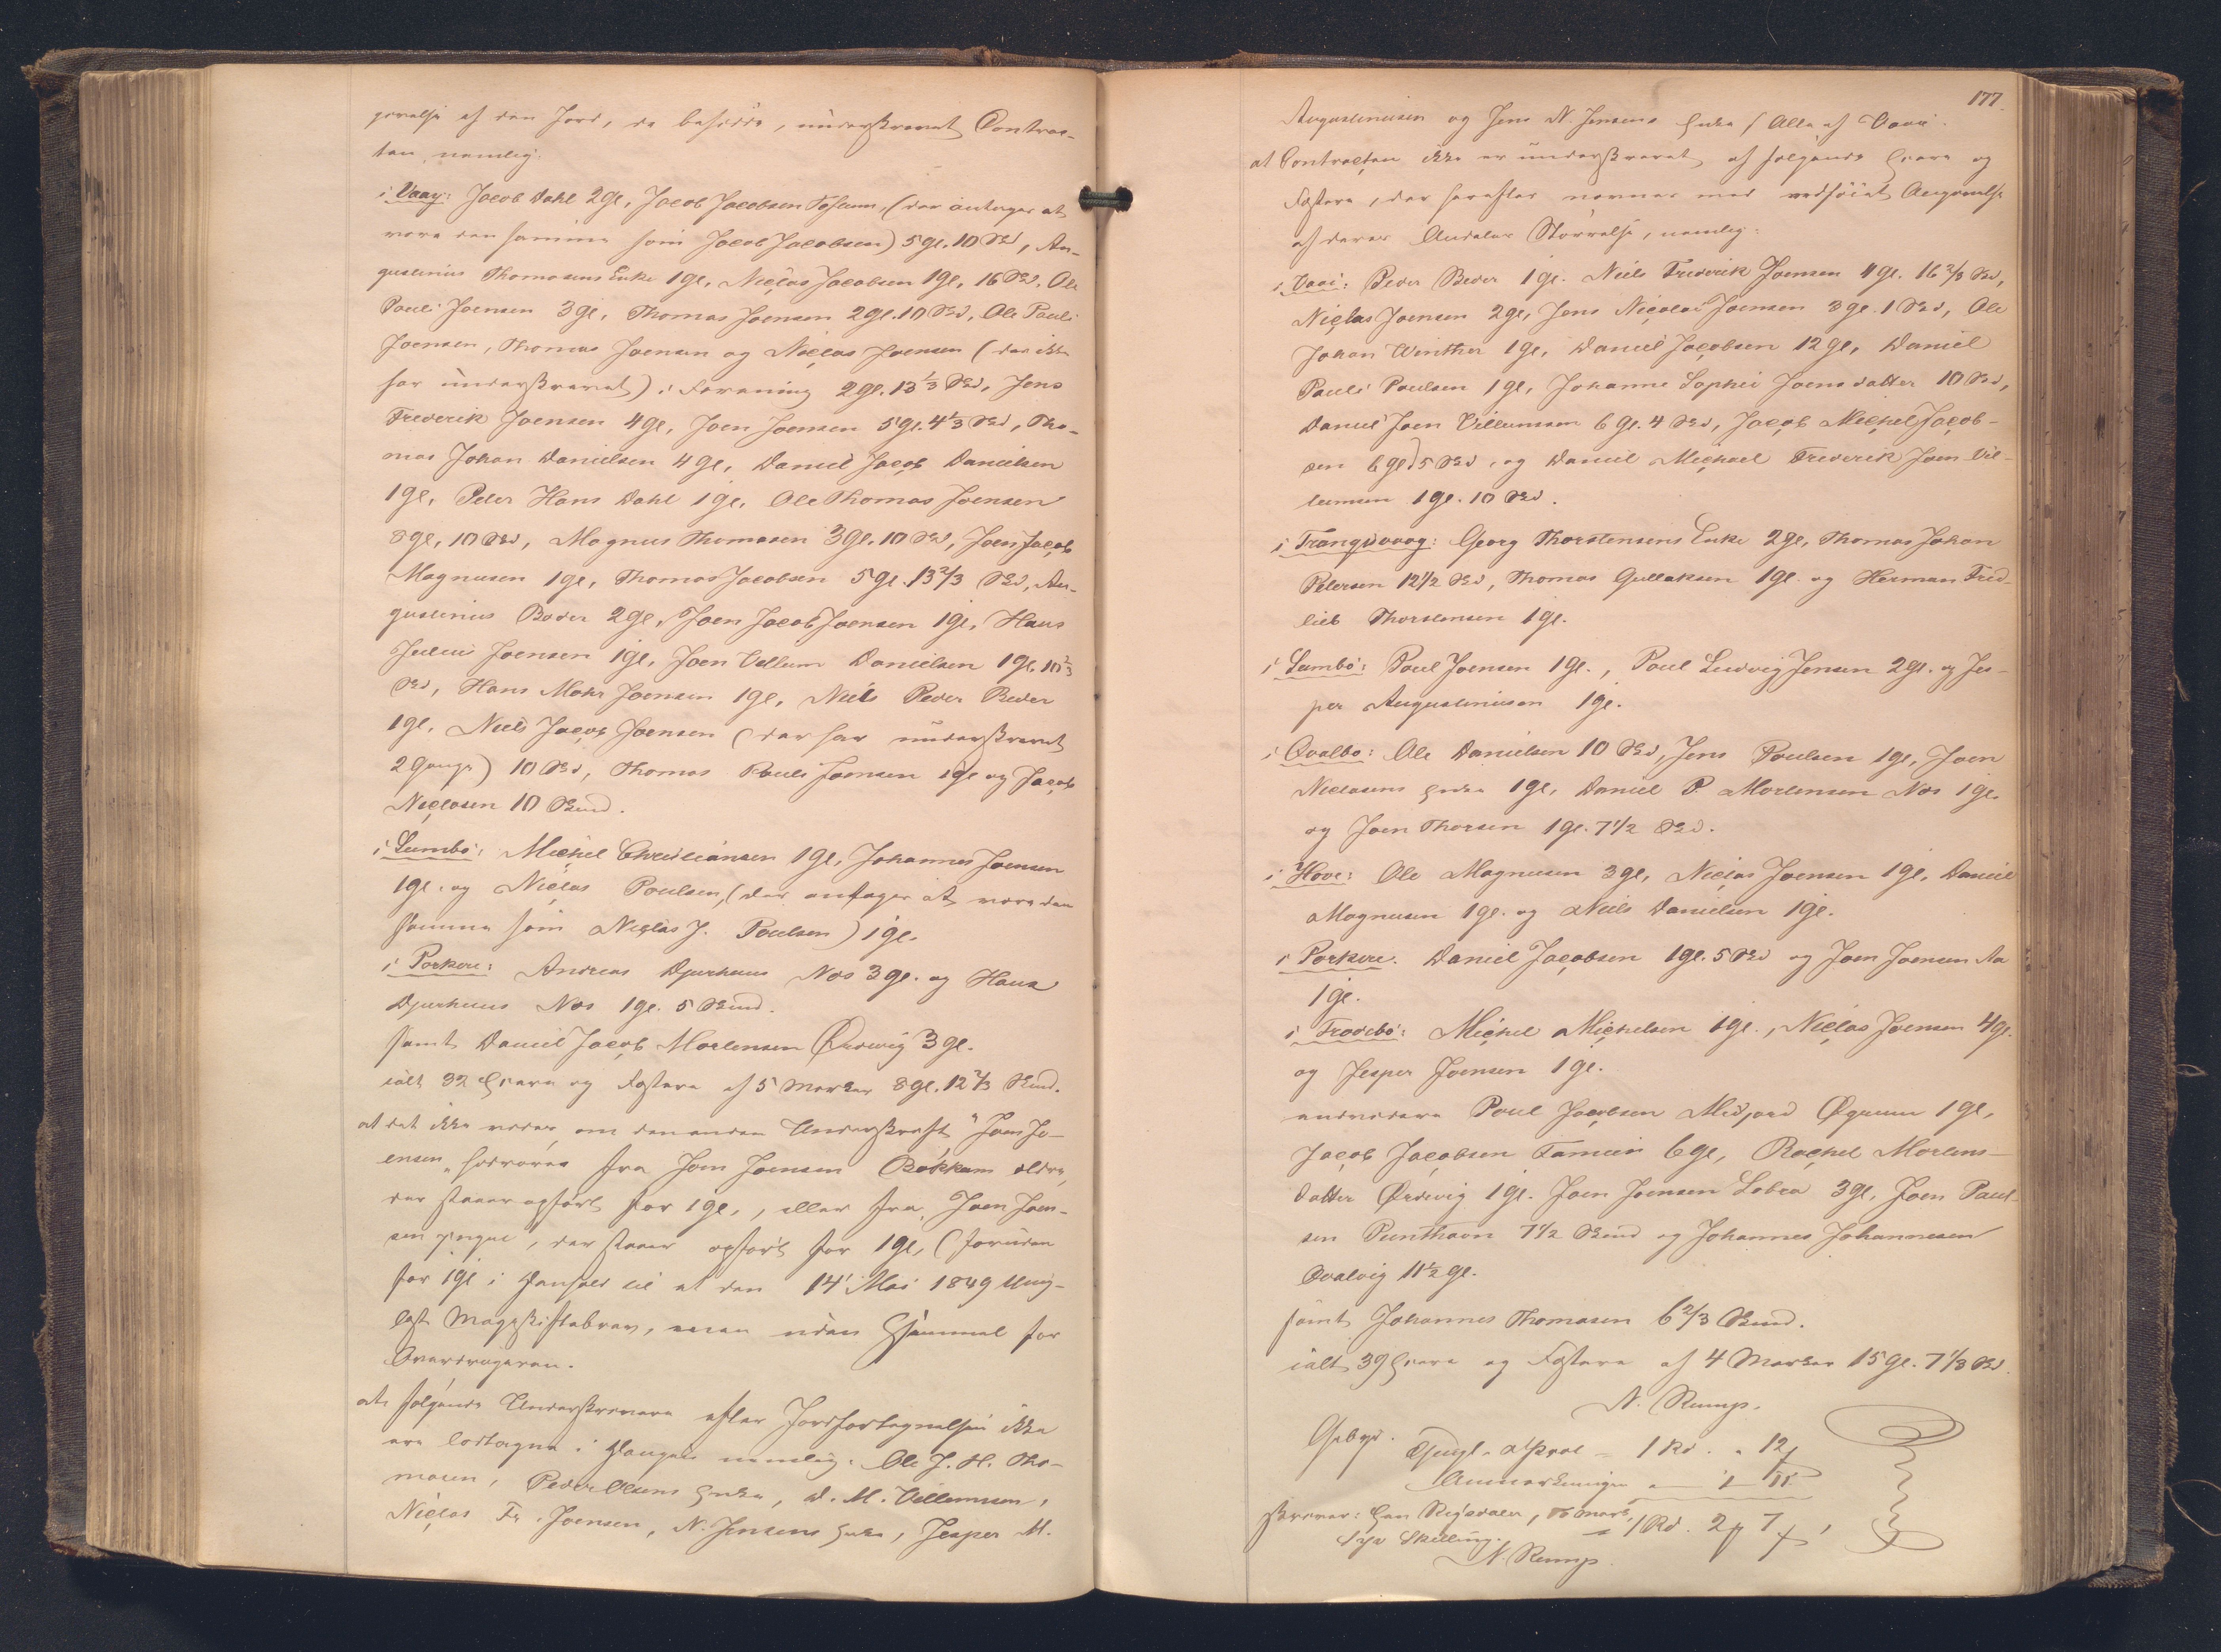 givelse af den Jord, de besidde, underskrevet Contrac-
ten, nemlig:
i Vaag: Jacob Dahl 2gl, Jacob Jacobsen Toftum, (der antages at
være den samme som Jacob Jacobsen) 5gl. 10 Skd, Au-
gustinus Thomasens Enke 1gl, Niclas Jacobsen 1gl, 16 Skd, Ole
Pauli Joensen 3gl, Thomas Joensen 2gl. 10 Skd, Ole Pauli
Joensen, Thomas Joensen og Niclas Joensen (der ikke
har underskrevet) i Forening 2gl. 13 1/3 Skd, Jens
Frederik Joensen 4gl, Joen Joensen 5gl. 4 1/3 Skd, Tho-
mas Johan Danielsen 4gl, Daniel Jacob Danielsen
1gl, Peter Hans Dahl 1gl, Ole Thomas Joensen
8gl, 10 Skd, Magnus Thomasen 3gl. 10 Skd, Joen Jacob
Magnusen 1gl, Thomas Jacobsen 5gl. 13 2/3 Skd, Au-
gustinus Beder 2gl, Joen Jacob Joensen 1gl, Hans
Jului Joensen 1gl, Joen Villum Danielsen 1gl, 10 2/3
Skd, Hans Mohr Joensen 1gl, Niels Peder Beder
1gl, Niels Jacob Joensen (der har underskrevet
2 Gange) 10 Skd, Thomas Pauli Joensen 1gl og Jacob
Niclasen 10 Skind.
i Sumbø: Michel Christiansen 1gl, Johannes Joensen
1gl. og Niclas Poulsen, (der antages at være den
samme som Niclas J. Poulsen) 1gl.
i Porkere: Andreas Djurhuus Næs 3gl. og Hans
Djurhuus Næs 1gl. 5 Skind.
samt Daniel Jacob Mortensen Ørdevig 3gl.
ialt 32 Eiere og Fæstere af 5 Marker 8gl. 12 2/3 Skind.
at det ikke vides, om den anden Underskrift "Joen Jo-
ensen" hidrører fra Joen Joensen Røkkum ældre,
der staaer opført for 1gl., eller fra Joen Joen-
sen yngre, der staaer opført for 1gl, (foruden
for 1gl i Henhold til et den 14' Mai 1849 thing-
læst Mageskiftebrev, men uden Hjemmel for
Overdrageren.
at følgende Underskrevere efter Jordfortegnelsen ikke
ere lodtagne i Haugen nemlig: Ole J. H. Tho-
masen, Peder Olsens Enke, D. M. Villumsen,
Niclas Fr. Joensen, N. Jensens Enke, Jesper M.
177.
Augustinusen og Jens N. Jensens Enke / Alle af Vaai.
at Contracten ikke er underskrevet af følgende Eiere og
Fæstere, der herefter nævnes med vedføiet Angivelse
af deres Andeles Størrelse, nemlig:
i Vaai: Peder Beder 1gl. Niels Frederik Joensen 4gl. 16 2/3 Skd,
Niclas Joensen 2gl, Jens Nicolai Joensen 3gl. 1 Skd, Ole
Johan Winther 1gl, Daniel Jacobsen 12gl, Daniel
Pauli Poulsen 1gl, Johanne Sophie Joensdatter 10 Skd,
Daniel Joen Villumsen 6gl. 4 Skd, Jacob Michel Jacob-
sen 6gl 5 Skd, og Daniel Michael Frederik Joen Vil-
lumsen 1gl. 10 Skd.
i Trangisvaag: Georg Thorstensens Enke 2gl, Thomas Johan
Petersen 12 1/2 Skd, Thomas Gullaksen 1gl. og Herman Fred-
lieb Thorstensen 1gl.
i Sumbø: Poul Joensen 1gl., Poul Ludvig Jensen 2gl. og Jes-
per Augustinusen 1gl.
i Qvalbø: Ole Danielsen 10 Skd, Jens Poulsen 1gl, Joen
Niclasens Enke 1gl, Daniel P. Mortensen Næs 1gl.
og Joen Thorsen 1gl. 7 1/2 Skd.
i Hove: Ole Magnusen 3gl, Niclas Joensen 1gl, Daniel
Magnusen 1gl. og Niels Danielsen 1gl.
i Porkere. Daniel Jacobsen 1gl. 5 Skd og Joen Joensen Aa
1gl.
i Frodebø: Michel Michelsen 1gl., Niclas Joensen 4gl.
og Jesper Joensen 1gl.
endvidere Poul Jacobsen Midjord Øgrum 1gl,
Jacob Jacobsen Famien 6gl, Rachel Mortens-
datter Ørdevig 1gl. Joen Joensen Lobra 3gl, Joen Paul-
sen Punthavn 7 1/2 Skind og Johannes Johannesen
Qvalvig 11 1/2 gl.
samt Johannes Thomasen 6 2/3 Skind.
ialt 39 Eiere og Fæstere af 4 Marker 15gl. 7 1/3 Skd.
N. Rump.
Gebyr.
1 Rd. " 12
Anmærkningen
skriver: Een Rigsdaler, to Mark,
Syv Skilling. 1 Rd. 2 7
N. Rump.